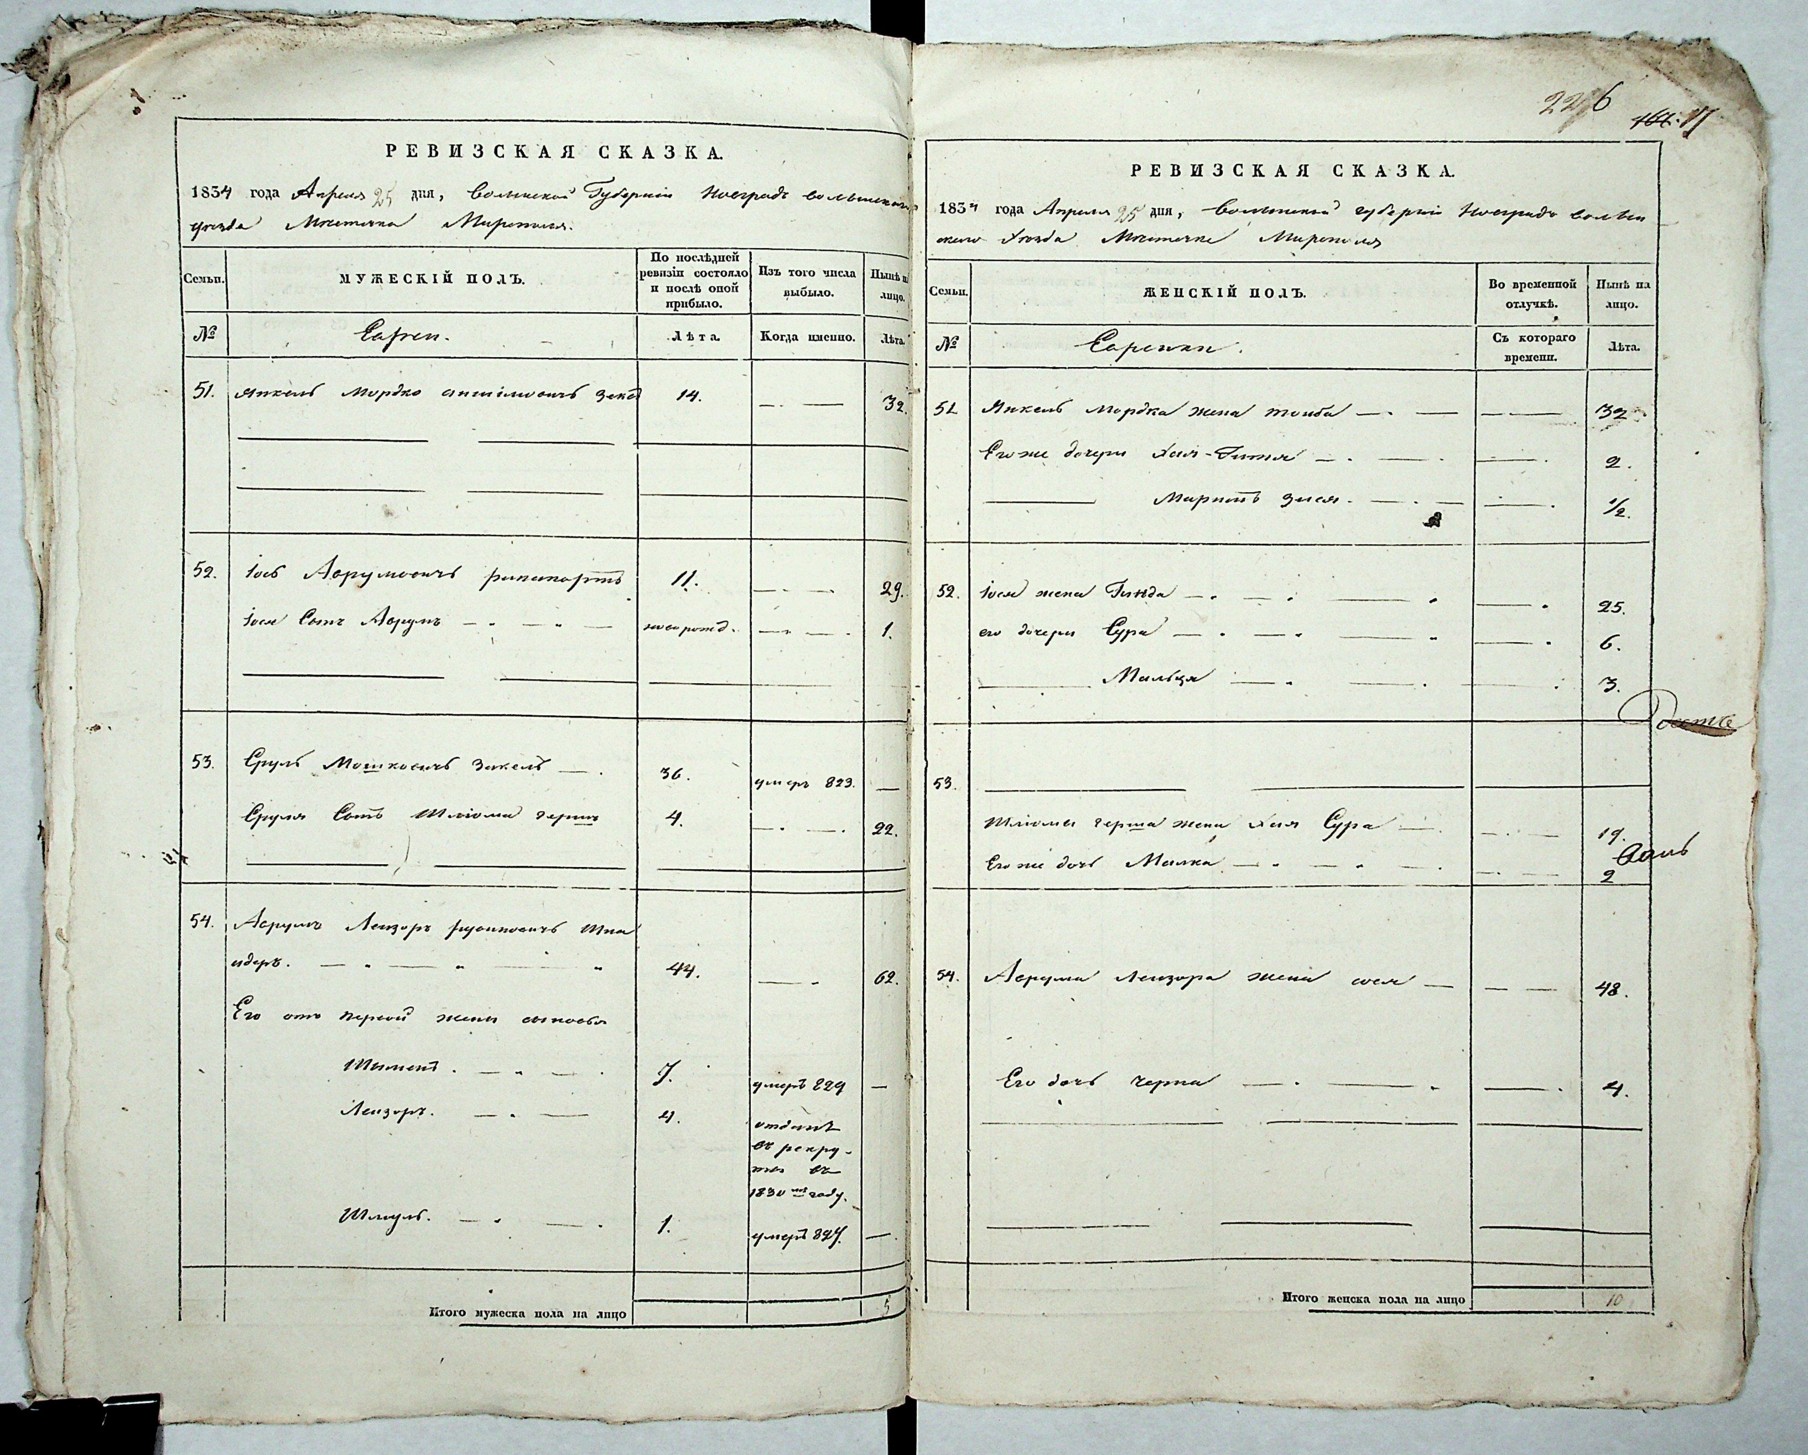 2276
164. 77
РЕВИЗСКАЯ СКАЗКА.
1834 года Апреля 25 дня, Волынской Губернии Новградъ волынскаго
уезда Местечка Мирополя.
Семьи.
МУЖЕСКІЙ ПОЛЪ.
По послѣдней ревизіи состояло и послѣ оной прибыло.
Изъ того числа выбыло.
Нынѣ на лицо.
№
Евреи.
Лѣта.
Когда именно.
Лѣта.
51. Янкель Мордко 14. 32.
52. Іось Аврумовичъ рапапортъ 11. 29.
Іося Сынъ Аврумъ новорожд. 1.
53. Сруль Мошковичъ Закелъ 36. умеръ 823.
Сруля Сынъ Шліома гершъ 4. 22.
54. Аврумъ Лейзоръ рувиновичъ Шна
йдеръ. 44. 62.
Его отъ первой жены сыновья
7. умеръ 829
Лейзоръ. 4. отданъ
въ рекру-
ты въ
1830 мъ году.
Шмуль. 1. умеръ 827.
Итого мужеска пола на лицо 5
РЕВИЗСКАЯ СКАЗКА.
1834 года Апреля 25 дня, Волынской губерніи Новградъ волын
скаго Уезда Местечка Мирополя
Семьи.
ЖЕНСКІЙ ПОЛЪ.
Во временной отлучкѣ.
Нынѣ на лицо.
№
Еврейки.
Съ котораго времени.
Лѣта.
51 Янкель Мордка жена тойба 32
Его же дочери Хая-Гитля 2.
Маріятъ Зися. 1/2.
52. Іося жена Гинда 25.
его дочери Сура 6.
Мальця 3.
53.
Шліомы герша жена Хая Сура 19.
Его же дочь Малка 2
54. Аврума Лейзора жена сося 48.
Его дочь черна 4.
Итого женска пола на лицо 10